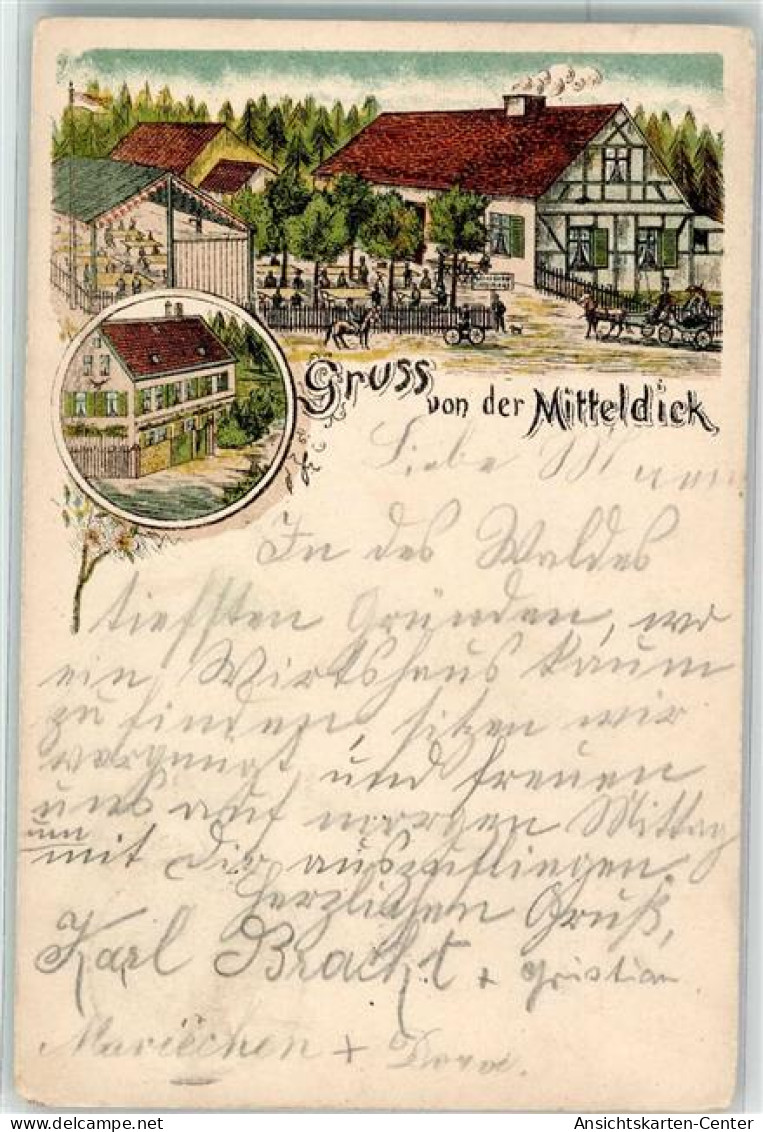 Gruss von der Mitteldick
Liebe
In des Waldes
tiefsten Gründen, wo
ein Wirtshaus kaum
zu finden, sitzen wir
vergnügt und freuen
uns auf morgen Mittag
um
mit Dir auszufliegen.
Herzlichen Gruß,
Karl Bracht + Christian
Mariechen + Dora.
Ansichtskarten-Center